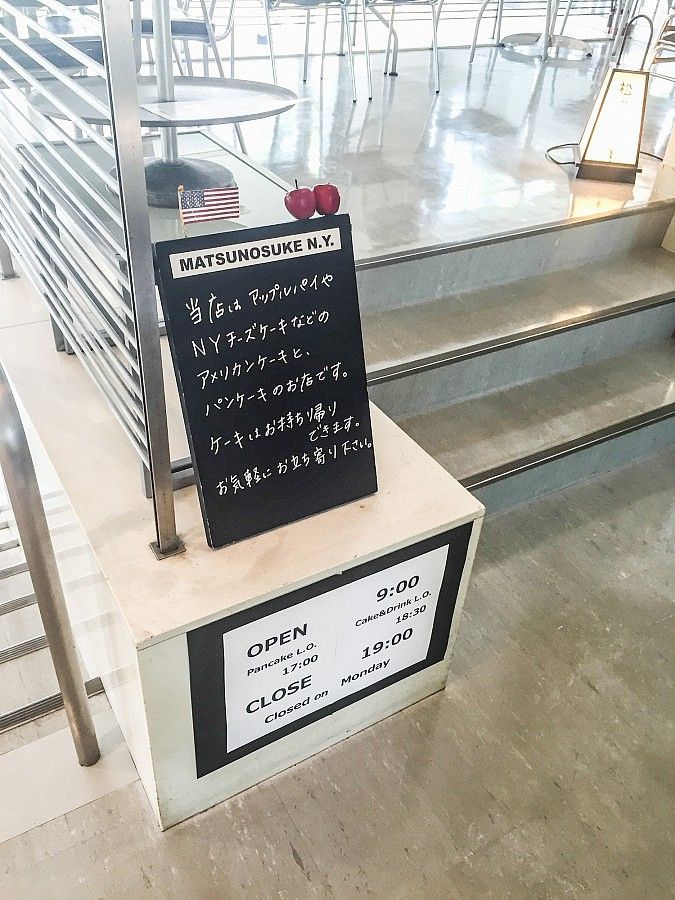 MATSUNOSUKE N.Y.
当店は アップルパイや
NYチーズケーキなどの
アメリカンケーキと、
パンケーキのお店です。
ケーキはお持ち帰り
できます。
お気軽にお立ち寄り下さい。
OPEN 9:00
Pancake L.O. 17:00
Cake&Drink L.O. 18:30
CLOSE 19:00
Closed on Monday